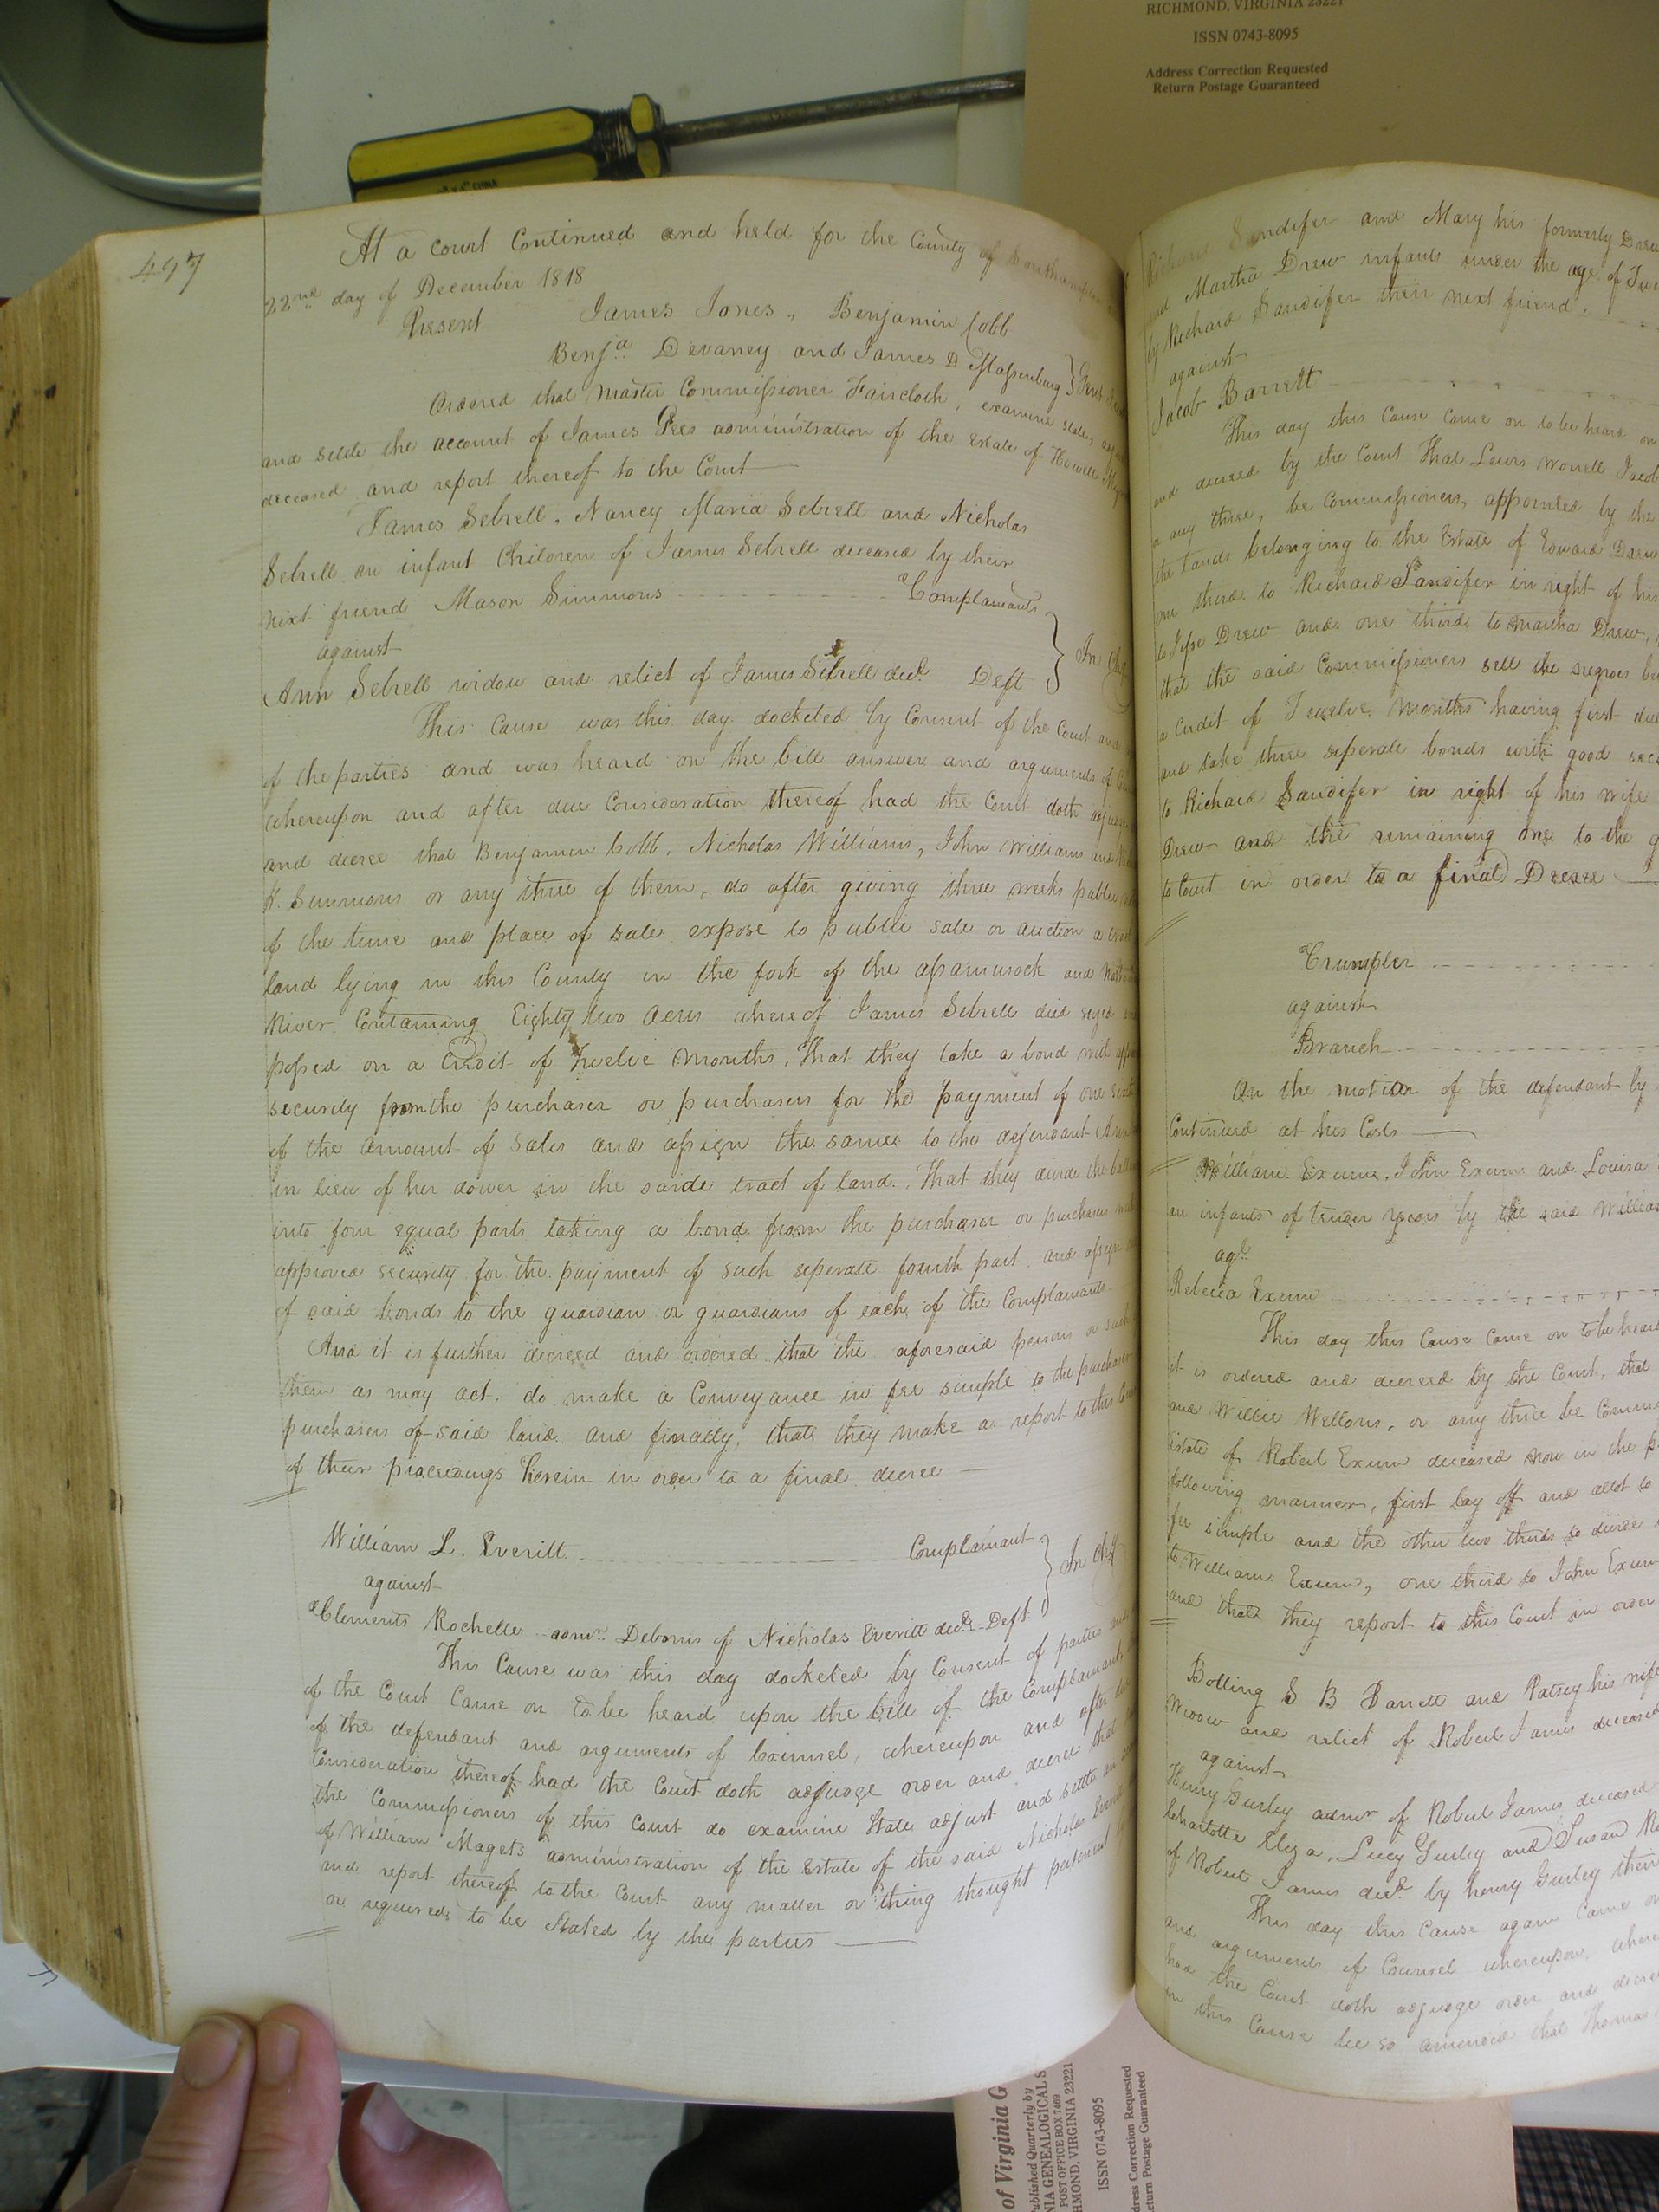 RICHMOND, VIRGINIA 23221
ISSN 0743-8095
Address Correction Requested
Return Postage Guaranteed
CHINA
497
At a court Continued and held for the County of Southampton
22nd day of December 1818
Present James Jones, Benjamin Cobb
Benja Devaney and James D Massenburg } Gent
Ordered that Master Commissioner Faircloth, examine state,
and settle the account of James Gees administration of the Estate of Howell
deceased and report thereof to the Court
James Sebrell, Nancy Maria Sebrell and Nicholas
Sebrell an infant Children of James Sebrell deceased by their
next friend Mason Simmons Complainants
against } In Chy
Ann Sebrell widow and relict of James Sebrell decd. Deft
This Cause was this day docketed by Consent of the Court and
of the parties and was heard on the bill answer and arguments of
whereupon and after due Consideration thereof had the Court doth
and decree that Benjamin Cobb, Nicholas Williams, John Williams and
H. Simmons or any three of them, do after giving three weeks public
of the time and place of sale expose to public sale or auction a
land lying in this County in the fork of the assamusock and
River Containing Eighty two acres whereof James Sebrell died seized
possed on a Credit of Twelve Months, That they take a bond with
security from the purchaser or purchasers for the payment of one
of the amount of sales and assign the same to the defendant Ann
in lieu of her dower in the saide tract of land. That they divide the
into four equal parts taking a bond from the purchaser or purchasers
approved security for the payment of such seperate fourth part and assign
of said bonds to the guardian or guardians of each of the Complainants.
And it is further decreed and ordered that the aforesaid persons or such
them as may act, do make a Conveyance in fee simple to the purchaser
purchasers of said land and finally, that they make a report to this
of their proceedings herein in order to a final decree
William L. Everitt Complainant
against } In Chy
Clements Rochelle admr. Debonis of Nicholas Everitt decd. Deft.
This Cause was this day docketed by Consent of parties and
of the Court Came on to be heard upon the bill of the Complainant
of the defendant and arguments of Counsel, whereupon and after due
Consideration thereof had the Court doth adjudge order and decree that
the Commissioners of this Court do examine State adjust and settle
of William Magets administration of the Estate of the said Nicholas
and report thereof to the Court any matter or thing thought pertinent
or required to be Stated by the parties
Richard Sandifer and Mary his formerly Drew
and Martha Drew infants under the age of
by Richard Sandifer their next friend.
against
Jacob Barrett
This day this Cause Came on to be heard on
and decreed by the Court That Lewis Worrell Jacob
or any three, be Commissioners, appointed by the
the Lands belonging to the Estate of Edward Drew
one third to Richard Sandifer in right of his
to Jesse Drew and one third to Martha Drew,
that the said Commissioners sell the negroes
a Credit of Twelve Months having first
and take three seperate bonds with good
to Richard Sandifer in right of his wife
Drew and the remaining one to the
to Court in order to a final Decree
Crumpler
against
Branch
On the motion of the defendant by
Continued at his Costs
William Exum, John Exum and Louisa
are infants of tender years by the said William
agt.
Rebecca Exum
This day this Cause Came on to be heard
it is ordered and decreed by the Court, that
and Willie Wellons, or any three be
Estate of Robert Exum deceased now in the
following manner, first lay off and allot to
fee simple and the other two thirds to divide
to William Exum, one third to John Exum
and that they report to this Court in order
Bolling S B Barrett and Patsey his wife
Widow and relict of Robert James deceased
against
Henry Gurley admr of Robert James deceased
Charlotte Eliza, Lucy Gurley and Susan
of Robert James decd. by Henry Gurley
This day this Cause again Came on
and arguments of Counsel whereupon,
had the Court doth adjudge order and decree
in this Cause be so amended that Thomas
of Virginia G
Published Quarterly by
NIA GENEALOGICAL S
POST OFFICE BOX 7469
HMOND, VIRGINIA 23221
ISSN 0743-8095
dress Correction Requested
eturn Postage Guaranteed